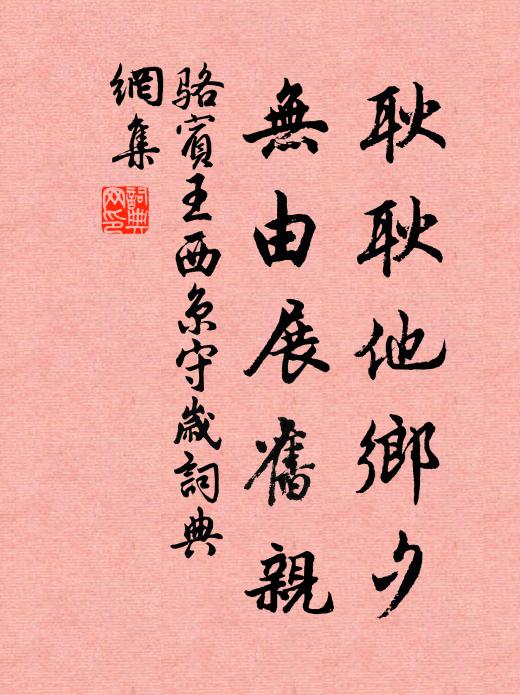 耿耿他鄉夕
無由展舊親
駱賓王西京守歲詞典
網集
詞典
网印